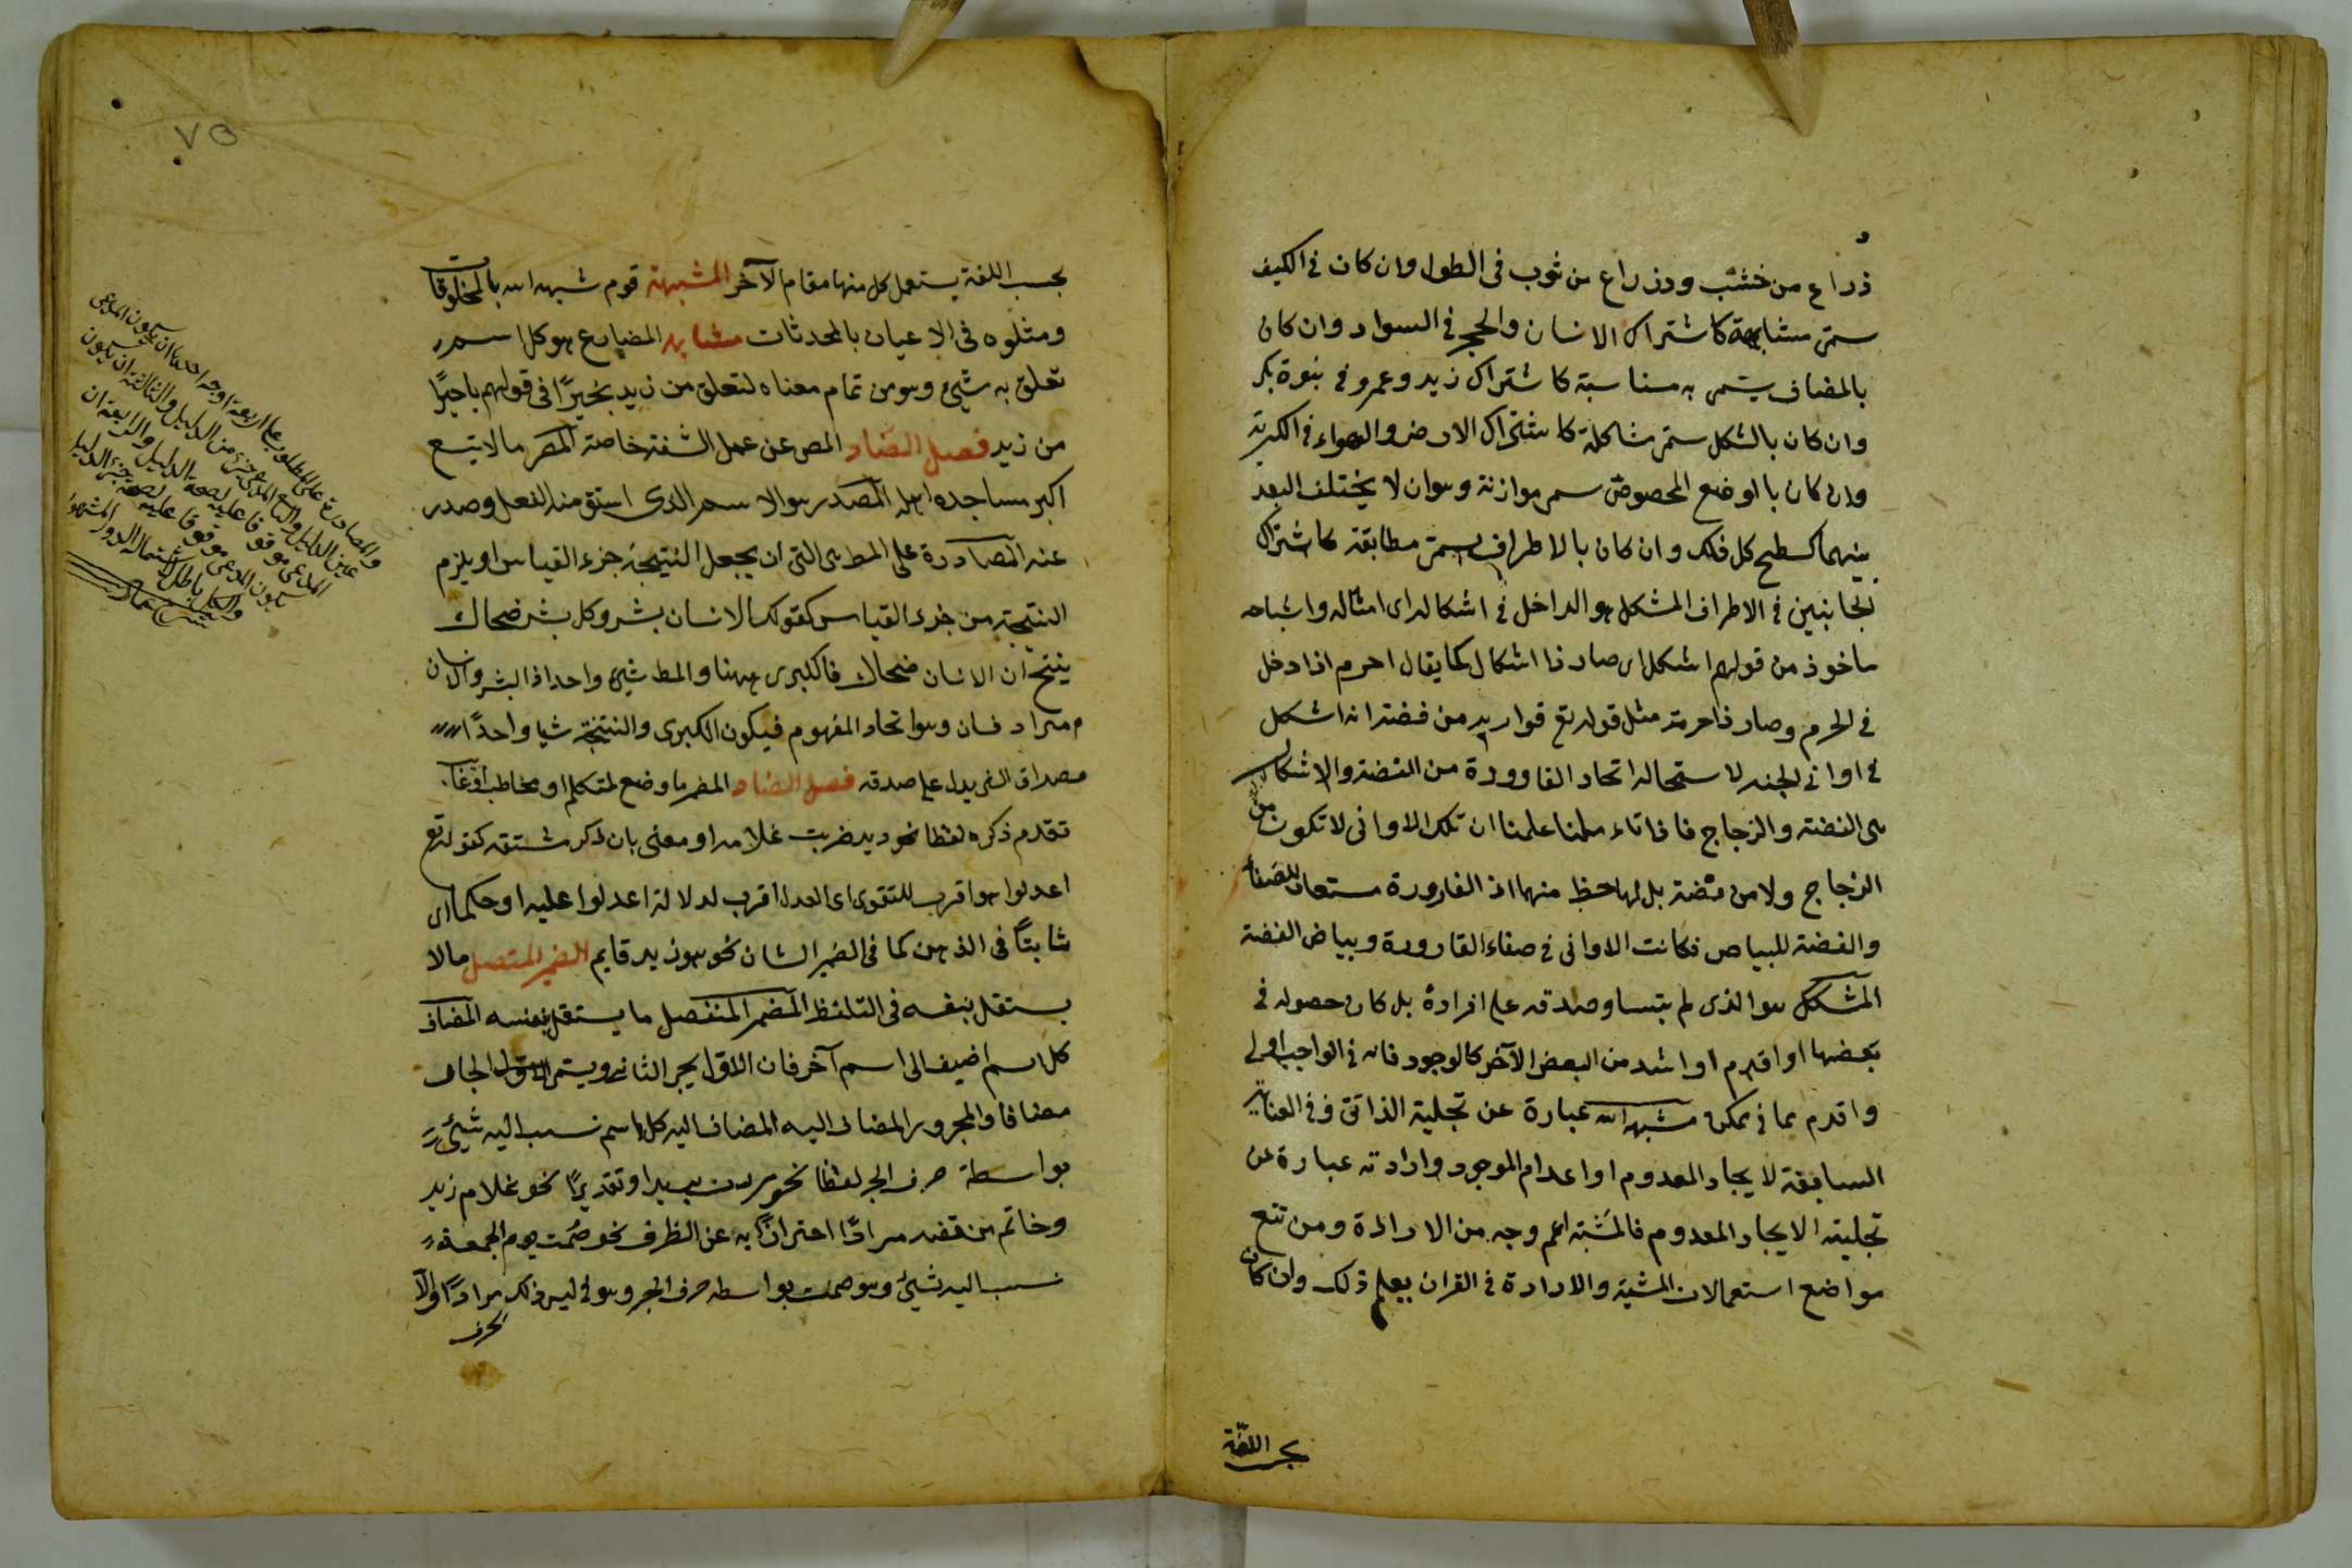 ذراع من خشب وذراع من ثوب فى الطول وان كان فى الكيف
سمى مشابهة كاشتراك الانسان والحجر فى السواد وان كان
بالمضاف يسمى به مناسبة كاشتراك زيد وعمرو فى بنوة بكر
وان كان بالشكل سمى مشاكلة كاشتراك الارض والهواء فى الكرية
وان كان بالوضع المخصوص سمى موازنة وهو ان لا يختلف البعد
بينهما كسطح كل فلك وان كان بالاطراف يسمى مطابقة كاشتراك
لجانبين فى الاطراف المشكل هو الداخل فى اشكاله اى امثاله واشباهه
ماخوذ من قولهم اشكل اى صار ذا اشكال كما يقال احرم اذا دخل
فى الحرم وصار ذا حرمة مثل قوله تع قوارير من فضة انه اشكل
فى اوانى الجنة لاستحالة اتحاد القارورة من الفضة والاشكال
هى الفضة والزجاج فاذا تاءملنا علمنا ان تلك الاوانى لا تكون من
الزجاج ولا من فضة بل لها حظ منهما اذ القارورة مستعار للصفاء
والفضة للبياض فكانت الاوانى فى صفاء القارورة وبياض الفضة
المشكك هو الذى لم يتساو صدقه على افراده بل كان حصوله فى
بعضها او اقدم او اشد من البعض الآخر كالوجود فانه فى الواجب اولى
واقدم مما فى ممكن مشية الله عبارة عن تجلية الذاتى و العناية
السابقة لايجاد المعدوم او اعدام الموجود وارادته عبارة عن
تجليته الايجاد المعدوم فالمشية اعم وجه من الارادة ومن تتبع
مواضع استعمالات المشية والارادة فى القران يعلم ذلك وان كان
بحسب اللغة
بحسب اللغة يستعمل كل منها مقام الآخر المشبهة قوم شبهوا الله بالمخلوقات
ومثلوه فى الاعيان بالمحدثات مشابه المضاع هو كل اسم
تعلق به شيئ وهو من تمام معناه لتعلق من زيد بخيرًا فى قولهم يا خيرًا
من زيد فصل الصاد المص عن عمل الشفة خاصة المصر ما لا يتسع
اكبر مساجده اهله المصدر هو الاسم الذى اشتق منه الفعل وصدر
عنه المصادرة على المط هى التى ان يجعل النتيجة جزء القياس او يلزم
النتيجة من جزء القياس كقولك الانسان بشر وكل بشر ضحاك
ينتج ان الانسان ضحاك فالكبرى ههنا والمط شيئ واحد اذ البشر والانسان
مترادفان وهو اتحاد المفهوم فيكون الكبرى والنتيجة شيا واحدًا
مصداق الشى يدل على صدقه فصل الضاد المضمر ما وضع لمتكلم او مخاطب او غا
تقدم ذكره لفظا نحو زيد ضربت غلامه او معنى بان ذكر مشتقه كقوله تع
اعدلوا هو اقرب للتقوى اى العدل اقرب لدلالة اعدلوا عليه او حكما اى
ثابتًا فى الذهن كما فى الضمير الشان نحو هو زيد قايم الضمير المتصل ما لا
يستقل بنفسه فى التلفظ المضمر المنفصل ما يستقل بنفسه المضاف
كل اسم اضيف الى اسم آخر فان الاول يجر الثانى ويسمى الجار
مضافا والمجرور المضاف اليه المضاف اليه كل اسم نسب اليه شيئ
بواسطة حرف الجر لفظا نحو مررت بزيد او تقديرًا نحو غلام زيد
وخاتم من فضة مرادًا احترازًا به عن الظرف نحو صمت يوم الجمعة
نسب اليه شيئ وهو صمت بواسطة حرف الجر وهو فى ليس ذلك مرادًا والا
٧٥
والمصادرة على المطلوب على اربعة اوجه احدها ان يكون المدعى
عين الدليل والثانى المدعى جزء من الدليل والثالثة ان يكون
المدعى موقوفا عليه لصحة الدليل والرابعة ان
يكون المدعى موقوفا عليه لصحة جزء الدليل
والكل باطل لاشتماله الدور المشهور